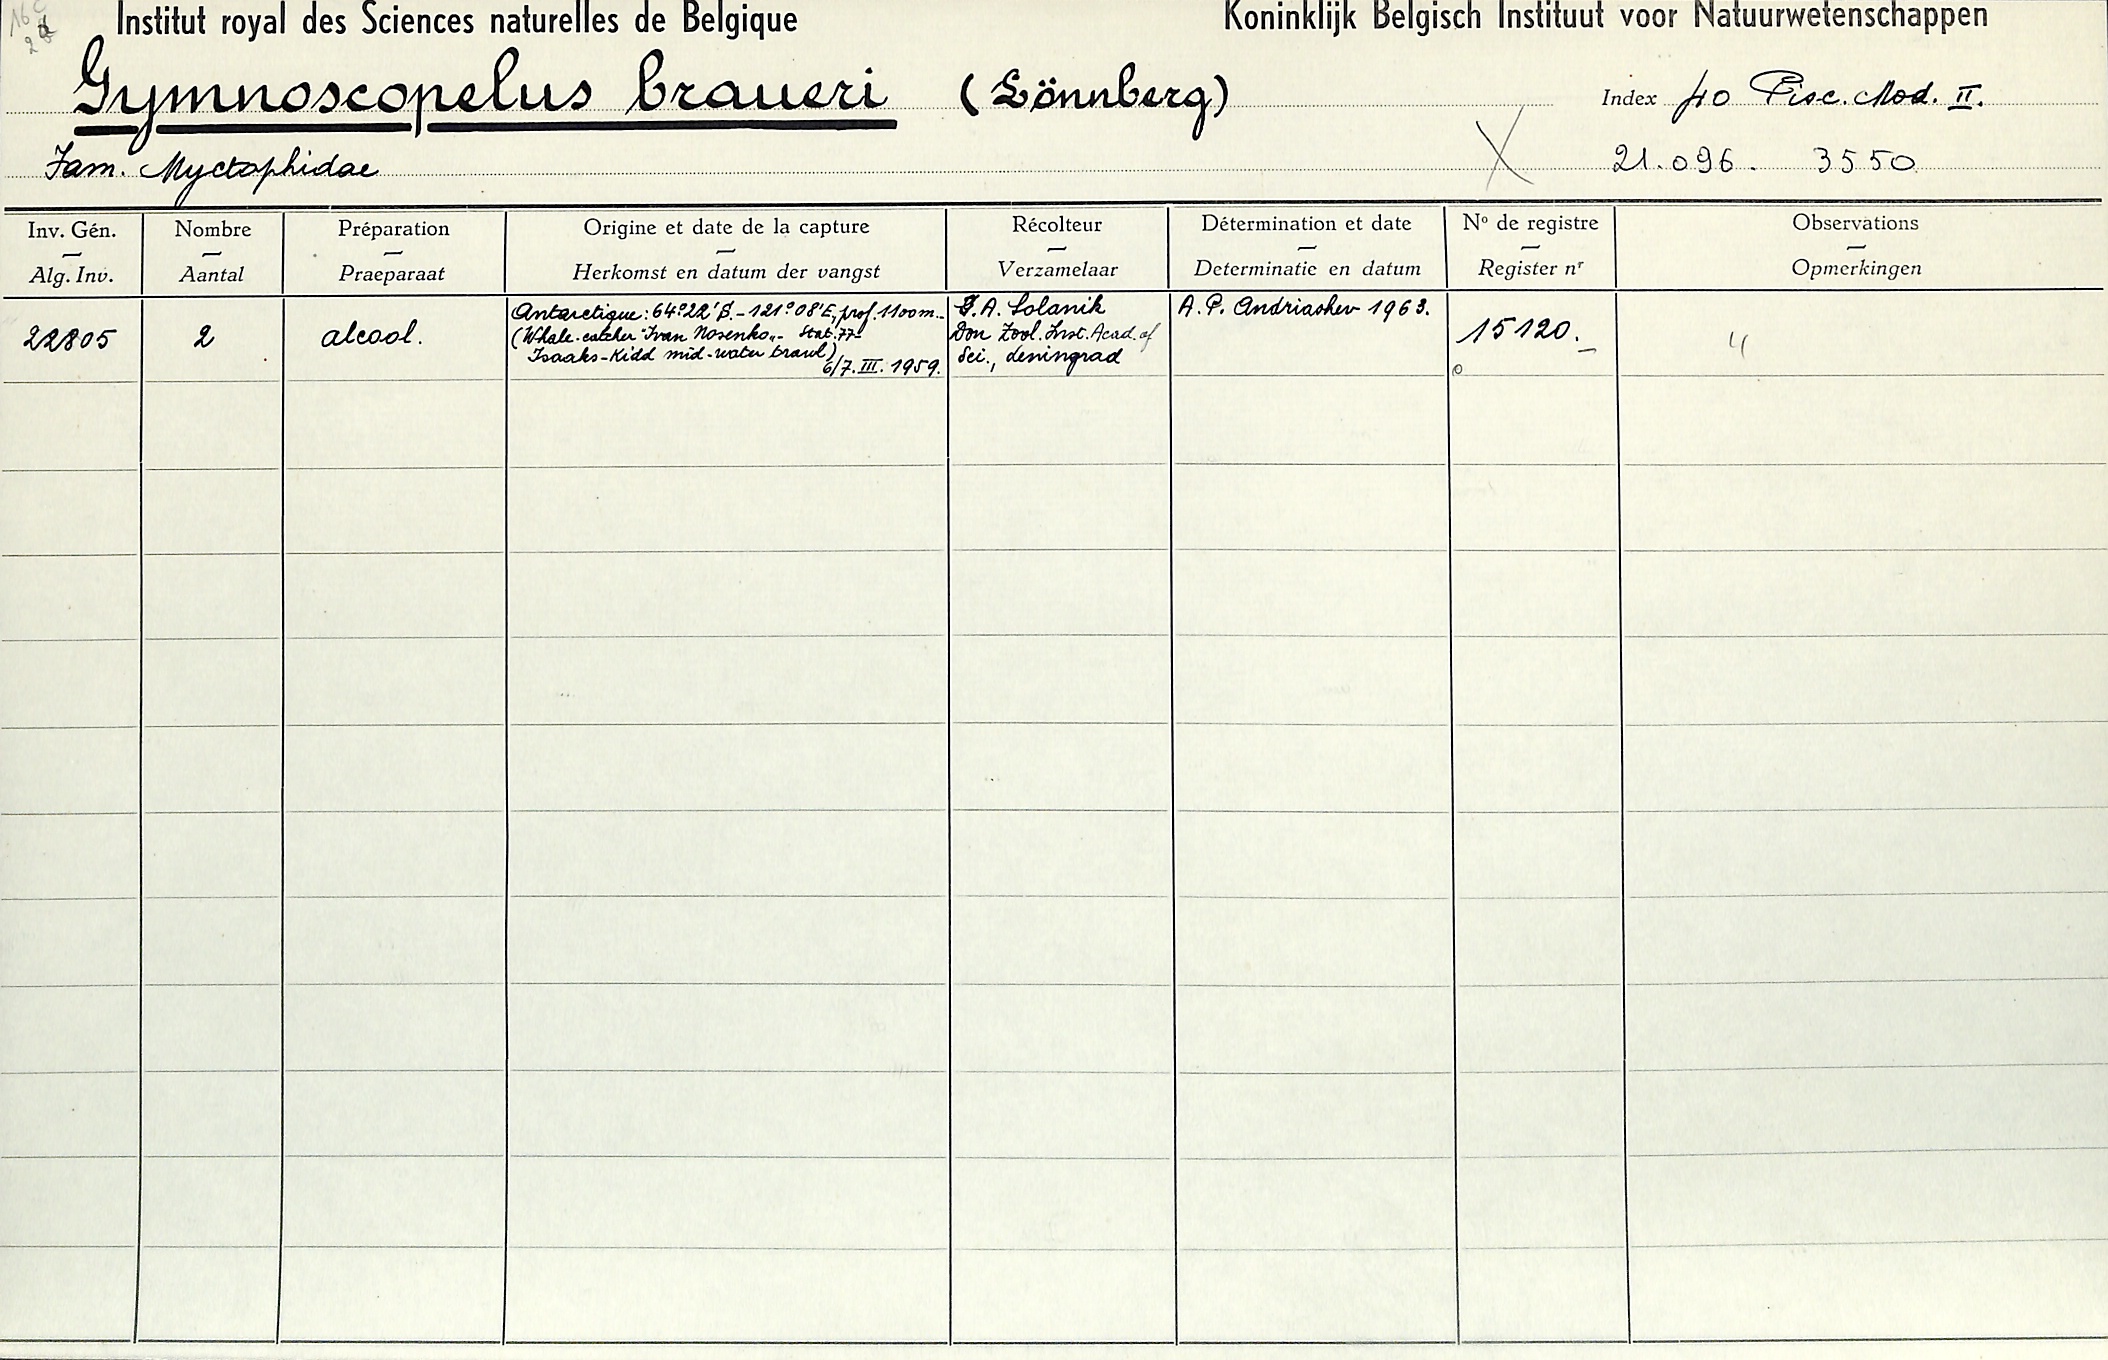 Institut royal des Sciences naturelles de Belgique
Koninklijk Belgisch Instituut voor Natuurwetenschappen
Gymnoscopelus braueri (Lönnberg)
Index 40 Pisc. Mod. II.
Fam. Myctophidae
21.096. 3550
Inv. Gén.
Alg. Inv.
Nombre
Aantal
Préparation
Praeparaat
Origine et date de la capture
Herkomst en datum der vangst
Récolteur
Verzamelaar
Détermination et date
Determinatie en datum
Nº de registre
Register nʳ
Observations
Opmerkingen
22805
2
alcool.
Antarctique: 64°22' S. - 121°08' E, prof. 1100m.-
(Whale-catcher "Ivan Nosenko„- Stat. 77-
Isaaks-Kidd mid-water trawl)
6/7. III. 1959.
G.A. Solanik
Don Zool. Inst. Acad. of
Sci., Leningrad
A. P. Andriashev 1963.
15120.